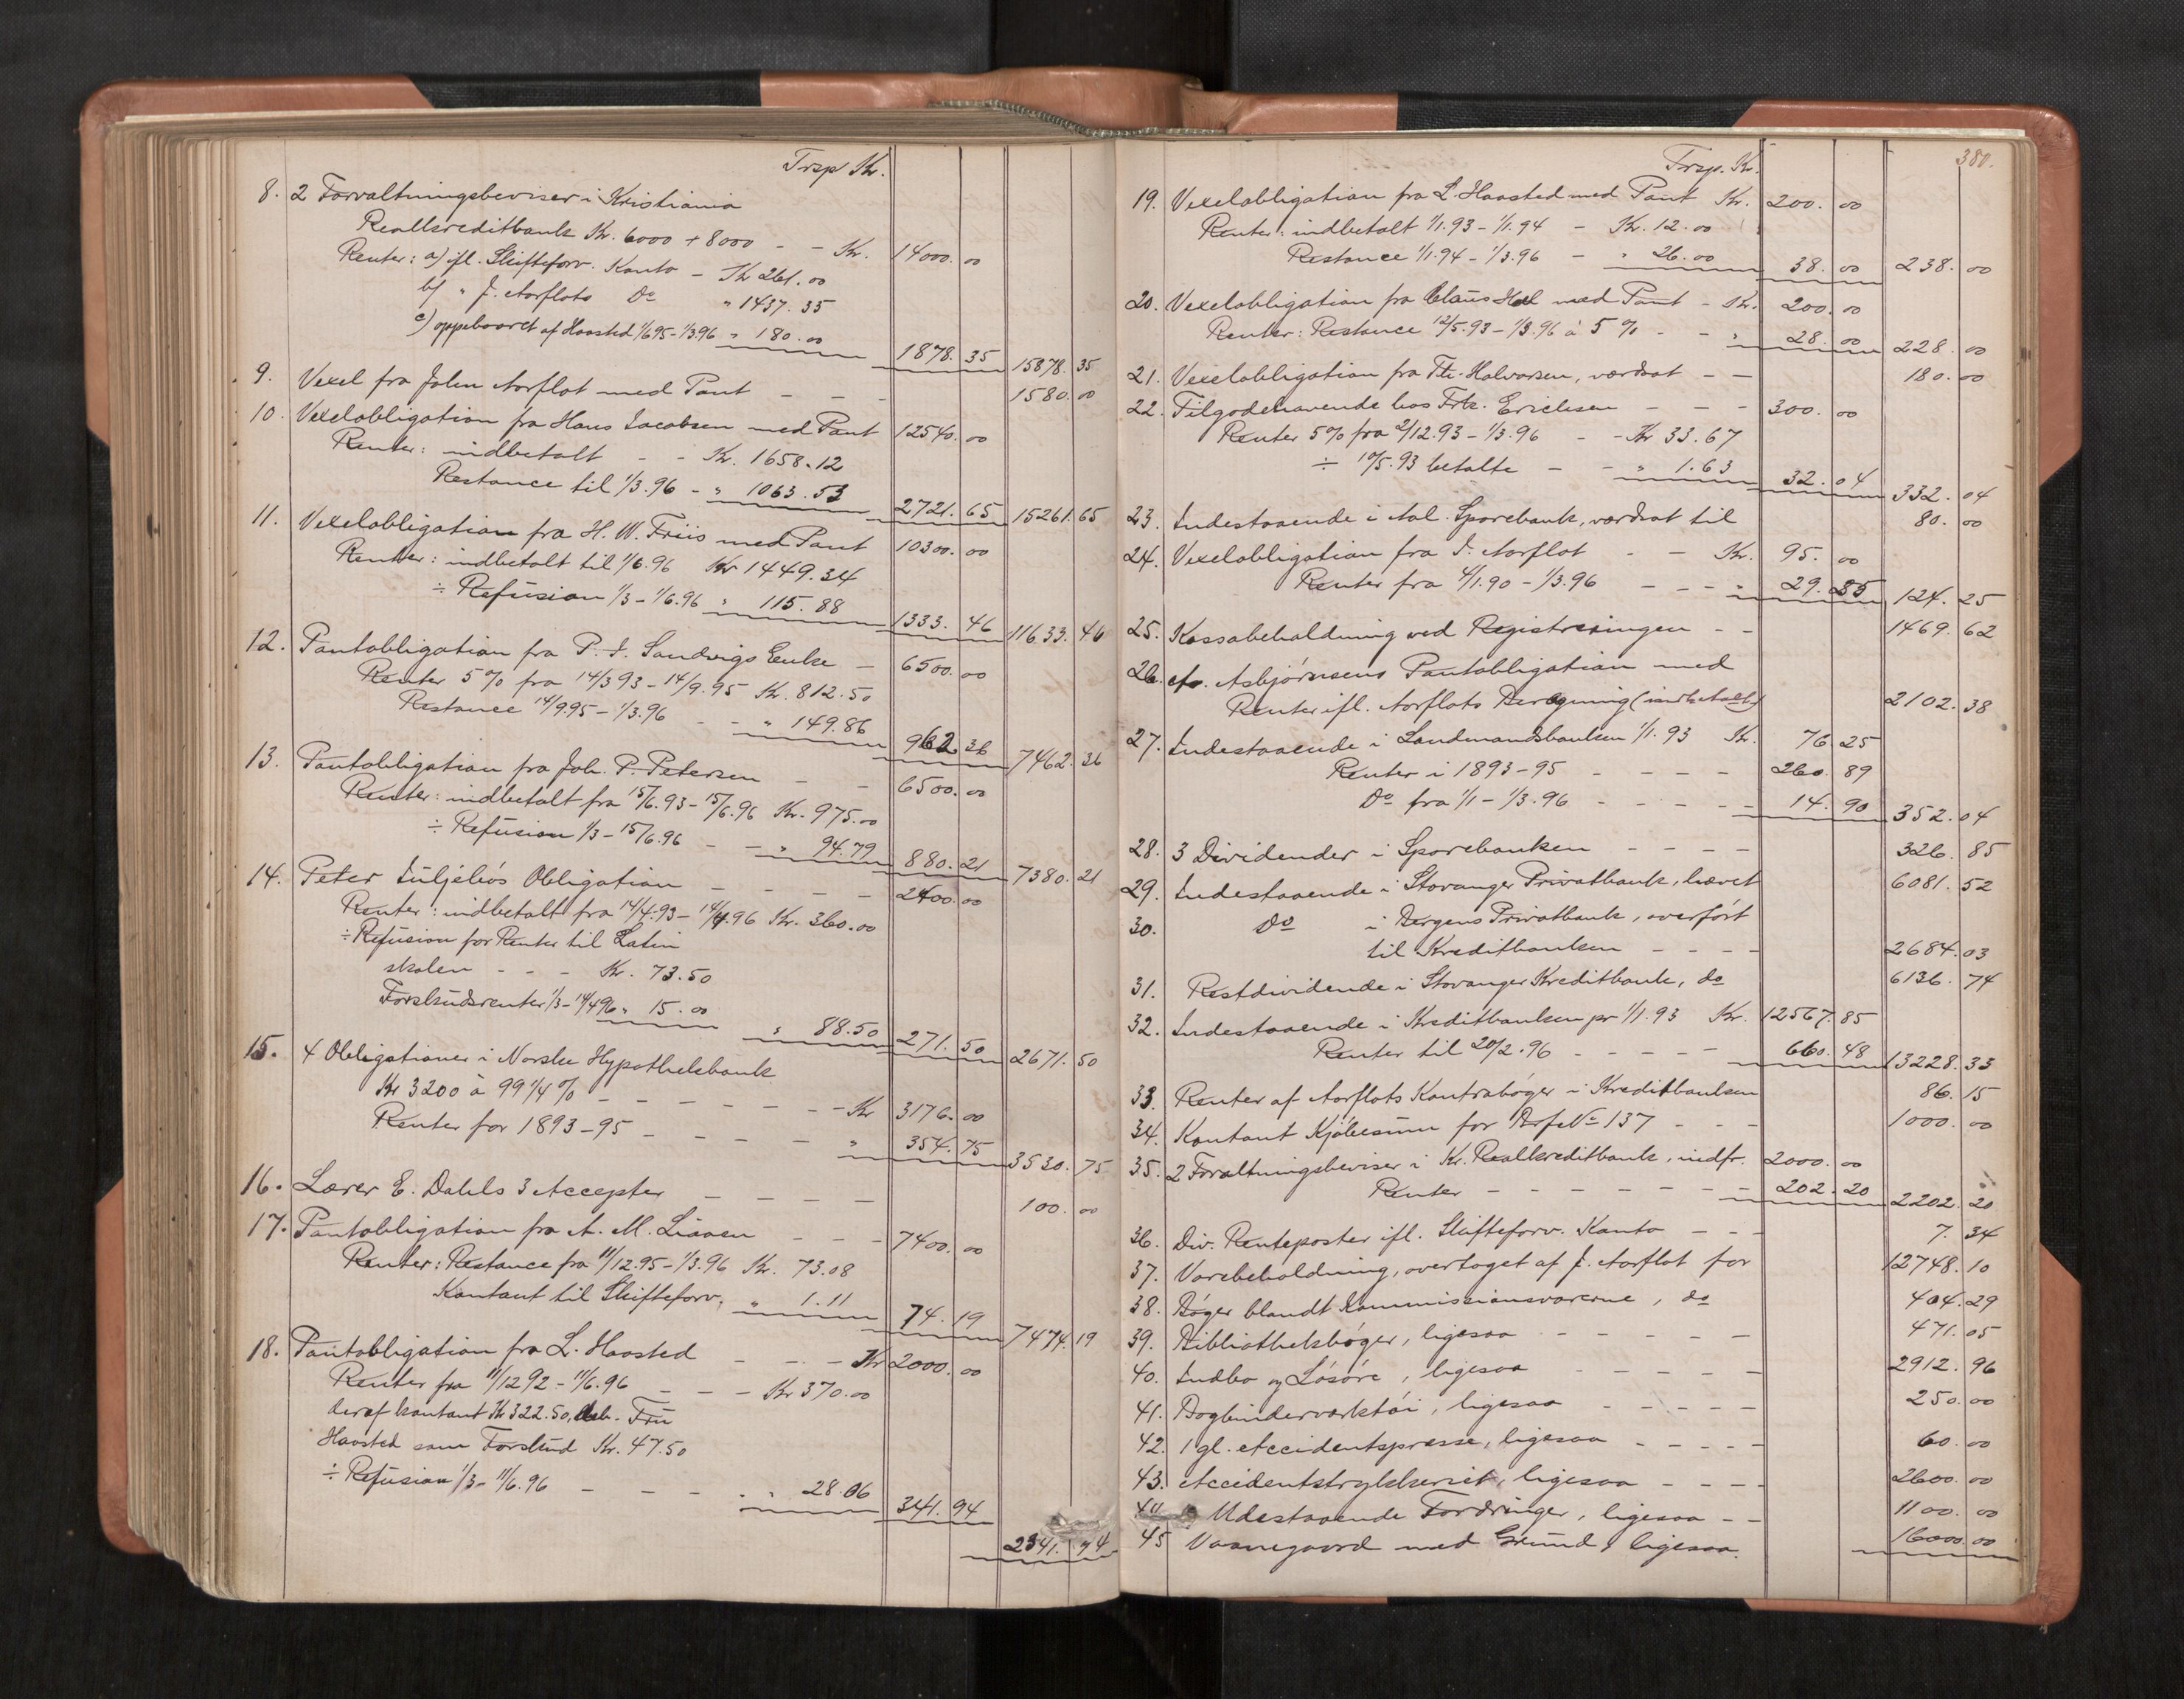 Trsp Kr.
8. 2 Forvaltningsbeviser i Kristiania
Reallkreditbank Kr. 6000 + 8000 - - Kr. 14000.00
Renter: a) ifl. Skifteforv. Konto - Kr 261.00
b) " J. Aarflots Do " 1437.35
c) oppebaaret af Haasted 1/6 95 - 1/3 96 " 180.00
1878.35 15878.35
9. Vexel fra John Aarflot med Pant - - - 1580.00
10. Vexelobligation fra Hans Jacobsen med Pant 12540.00
Renter: indbetalt - - Kr. 1658.12
Restance til 1/3.96 - " 1063.53
2721.65 15261.65
11. Vexelobligation fra H. W. Friis med Pant 10300.00
Renter: indbetalt til 1/6.96 Kr 1449.34
÷ Refusion 1/3 - 1/6.96 " 115.88
1333.46 11633.46
12. Pantobligation fra P. J. Sandvigs Enke - 6500.00
Renter 5% fra 14/3 93 - 14/9.95 Kr. 812.50
Restance 14/9.95 - 1/3.96 - - " 149.86
962.36 7462.36
13. Pantobligation fra Joh. P. Petersen - - 6500.00
Renter: indbetalt fra 15/6.93 - 15/6.96 Kr. 975.00
÷ Refusion 1/3 - 15/6.96 - - " 94.79
880.21 7380.21
14. Peter Juljebøs Obligation - - - - 2400.00
Renter: indbetalt fra 14/4.93 - 14/4.96 Kr. 360.00
÷ Refusion for Renter til Latin
skolen - - - Kr. 73.50
Forskudsrenter 1/3 - 14/4 96 " 15.00
" 88.50 271.50 2671.50
15. 4 Obligationer i Norske Hypothekbank
Kr 3200 à 99 1/4 % - - - - - - Kr 3176.00
Renter for 1893-95 - - - - - " 354.75 3530.75
16. Lærer E. Dahls 3 Accepter - - - - 100.00
17. Pantobligation fra A. M. Liaaen - - - 7400.00
Renter: Restance fra 11/12.95 - 1/3.96 Kr. 73.08
Kontant til Skifteforv. " 1.11
74.19 7474.19
18. Pantobligation fra L. Haasted - - - Kr 2000.00
Renter fra 11/12 92 - 11/6.96 - - - Kr 370.00
deraf kontant Kr 322.50, deb. Fru
Haasted som Forskud Kr. 47.50
÷ Refusion 1/3 - 11/6.96 - - - " 28.06
341.94
2341.94
380.
Trsp. Kr.
19. Vexelobligation fra L. Haasted med Pant Kr. 200.00
Renter: indbetalt 1/1.93 - 1/1.94 - Kr. 12.00
Restance 1/1.94 - 1/3.96 - " 26.00 38.00 238.00
20. Vexelobligation fra Claus Hol med Pant - Kr. 200.00
Renter: Restance 12/5.93 - 1/3.96 à 5% - - " 28.00 228.00
21. Vexelobligation fra Th. Halvorsen, værdsat - - 180.00
22. Tilgodehavende hos Frk. Erichsen - - - 300.00
Renter 5% fra 2/12.93 - 1/3.96 - - Kr 33.67
÷ 10/5.93 betalte - - " 1.63 32.04 332.04
23. Indestaaende i Aal. Sparebank, værdsat til 80.00
24. Vexelobligation fra J. Aarflot - - Kr. 95.00
Renter fra 4/1.90 - 1/3.96 - - - " 29.25 124.25
25. Kassabeholdning ved Registreringen - - 1469.62
26. A. Asbjørnsens Pantobligation med
Renter ifl. Aarflots Beregning (indbetalt) 2102.38
27. Indestaaende i Landmandsbanken 1/1.93 Kr. 76.25
Renter i 1893-95 - - - - 260.89
Do fra 1/1 - 1/3.96 - - - - - 14.90 352.04
28. 3 Dividender i Sparebanken - - - - 326.85
29. Indestaaende i Stavanger Privatbank, hævet 6081.52
30. Do i Bergens Privatbank, overført
til Kreditbanken - - - - 2684.03
31. Restdividende i Stavanger Kreditbank, do 6136.74
32. Indestaaende i Kreditbanken pr 1/1.93 Kr. 12567.85
Renter til 20/2.96 - - - - - 660.48 13228.33
33. Renter af Aarflots Kontrabøger i Kreditbanken 86.15
34. Kontant Kjøbesum for Brf. No 137 - - - 1000.00
35. 2 Forvaltningsbeviser i Kr. Reallkreditbank, indfr. 2000.00
Renter - - - - - - - 202.20 2202.20
36. Div. Renteposter ifl. Skifteforv. Konto - - - 7.34
37. Varebeholdning, overtaget af J. Aarflot for 12748.10
38. Bøger blandt Kommissionsvarerne, do 404.29
39. Bibliothekbøger, ligesaa - - - - - 471.05
40. Indbo og Løsøre, ligesaa - - - - 2912.96
41. Bogbinderværktøi, ligesaa - - - - - 250.00
42. 1 gl. Accidentspresse, ligesaa - - - - - 60.00
43. Accidentstrykkeriet, ligesaa - - - - 2600.00
44 Udestaaende Fordringer, ligesaa - - 1100.00
45 Vaanegaard med Grund, ligesaa. 16000.00